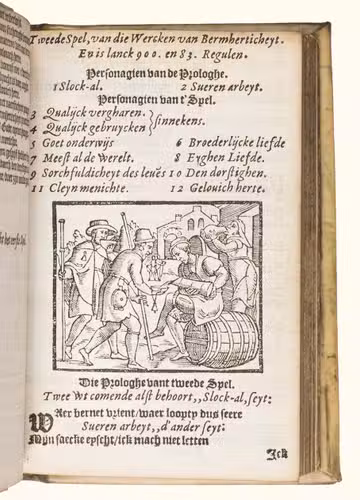 Tweede Spel, van die Wercken van Bermherticheyt.
En is lanck 900. en 83. Regulen.
Personagien van de Prologhe.
1 Slock-al. 2 Sueren arbeyt.
Personagien van t'Spel.
3 Qualijck vergharen.
4 Qualijck gebruycken
sinnekens.
5 Goet onderwijs 6 Broederlijcke liefde
7 Meest al de Werelt. 8 Eyghen Liefde.
9 Sorchfuldicheyt des levēs 10 Den dorstighen.
11 Cleyn menichte. 12 Gelovich herte.
Die Prologhe vant tweede Spel.
Twee Wt comende alst behoort,, Slock-al, seyt:
WAer hernet vrient/waer loopty dus seere
Sueren arbeyt,, d'ander seyt:
Mijn saecke eyscht/ick mach niet letten
Ick